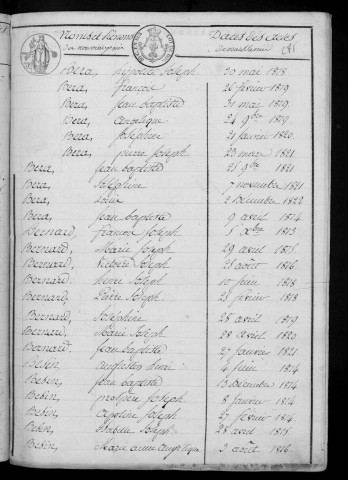 Noms et Prénoms Dates des actes
des nouveaux nés de naissance
Bera, hypolite Joseph 30 mai 1818
Bera, francois 26 fevrier 1819
Bera, jean baptiste 31 mai 1819
Bera, angelique 24 9bre 1819
Bera, Joséphine 21 fevrier 1820
Bera, pierre Joseph 20 mars 1821
Bera, jean baptiste 25 9bre 1821
Bera, Joséphine 7 novembre 1821
Bera, 2 décembre 1822
Bera, jean baptiste 9 avril 1814
Bernard, francois Joseph 5 Xbre 1813
Bernard, Marie Joseph 29 avril 1815
Bernard, victoire Joseph 25 août 1816
Bernard, Joseph 10 juin 1818
Bernard, Pierre Joseph 25 fevrier 1818
Bernard, Joséphine 25 avril 1819
Bernard, Marie Joseph 28 avril 1820
Bernard, Jean baptiste 27 janvier 1821
4 juin 1814
Bebin, jean baptiste 13 décembre 1814
Bebin, prospère Joseph 8 janvier 1814
Bebin, apoline Joseph 27 fevrier 1814
Bebin, Isabelle Joseph 28 avril 1815
Bebin, Marie anne angelique 3 août 1816